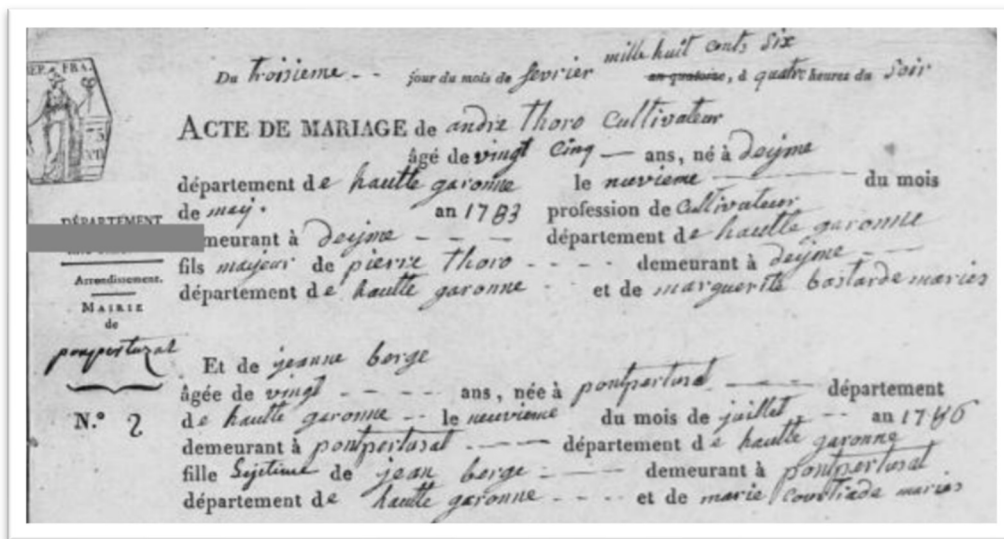 REP. FRA.
mille huit cents Six
Du troisieme - - jour du mois de fevrier an quatorze, à quatre heures du Soir
ACTE DE MARIAGE de andre Thoro Cultivateur
âgé de vingt Cinq — ans, né à deyme
département de hautte garonne le neuvieme — du mois
de may. an 1783 profession de Cultivateur
DÉPARTEMENT
meurant à deyme - - - département de hautte garonne
fils majeur de pierre Thoro - - - - demeurant à deyme —
Arrondissement.
département de hautte garonne - - et de marguerite bastarde maries
MAIRIE
de
pompertuzat
Et de jeanne borge
âgée de vingt - - - - ans, née à pontpertusat — département
N.º 2
de hautte garonne - - le neuvieme du mois de juillet - - an 1786
demeurant à pontpertusat - - - - département de hautte garonne
fille de jean borge - — demeurant à pontpertusat
département de hautte garonne - - - - et de marie Courtiade maries